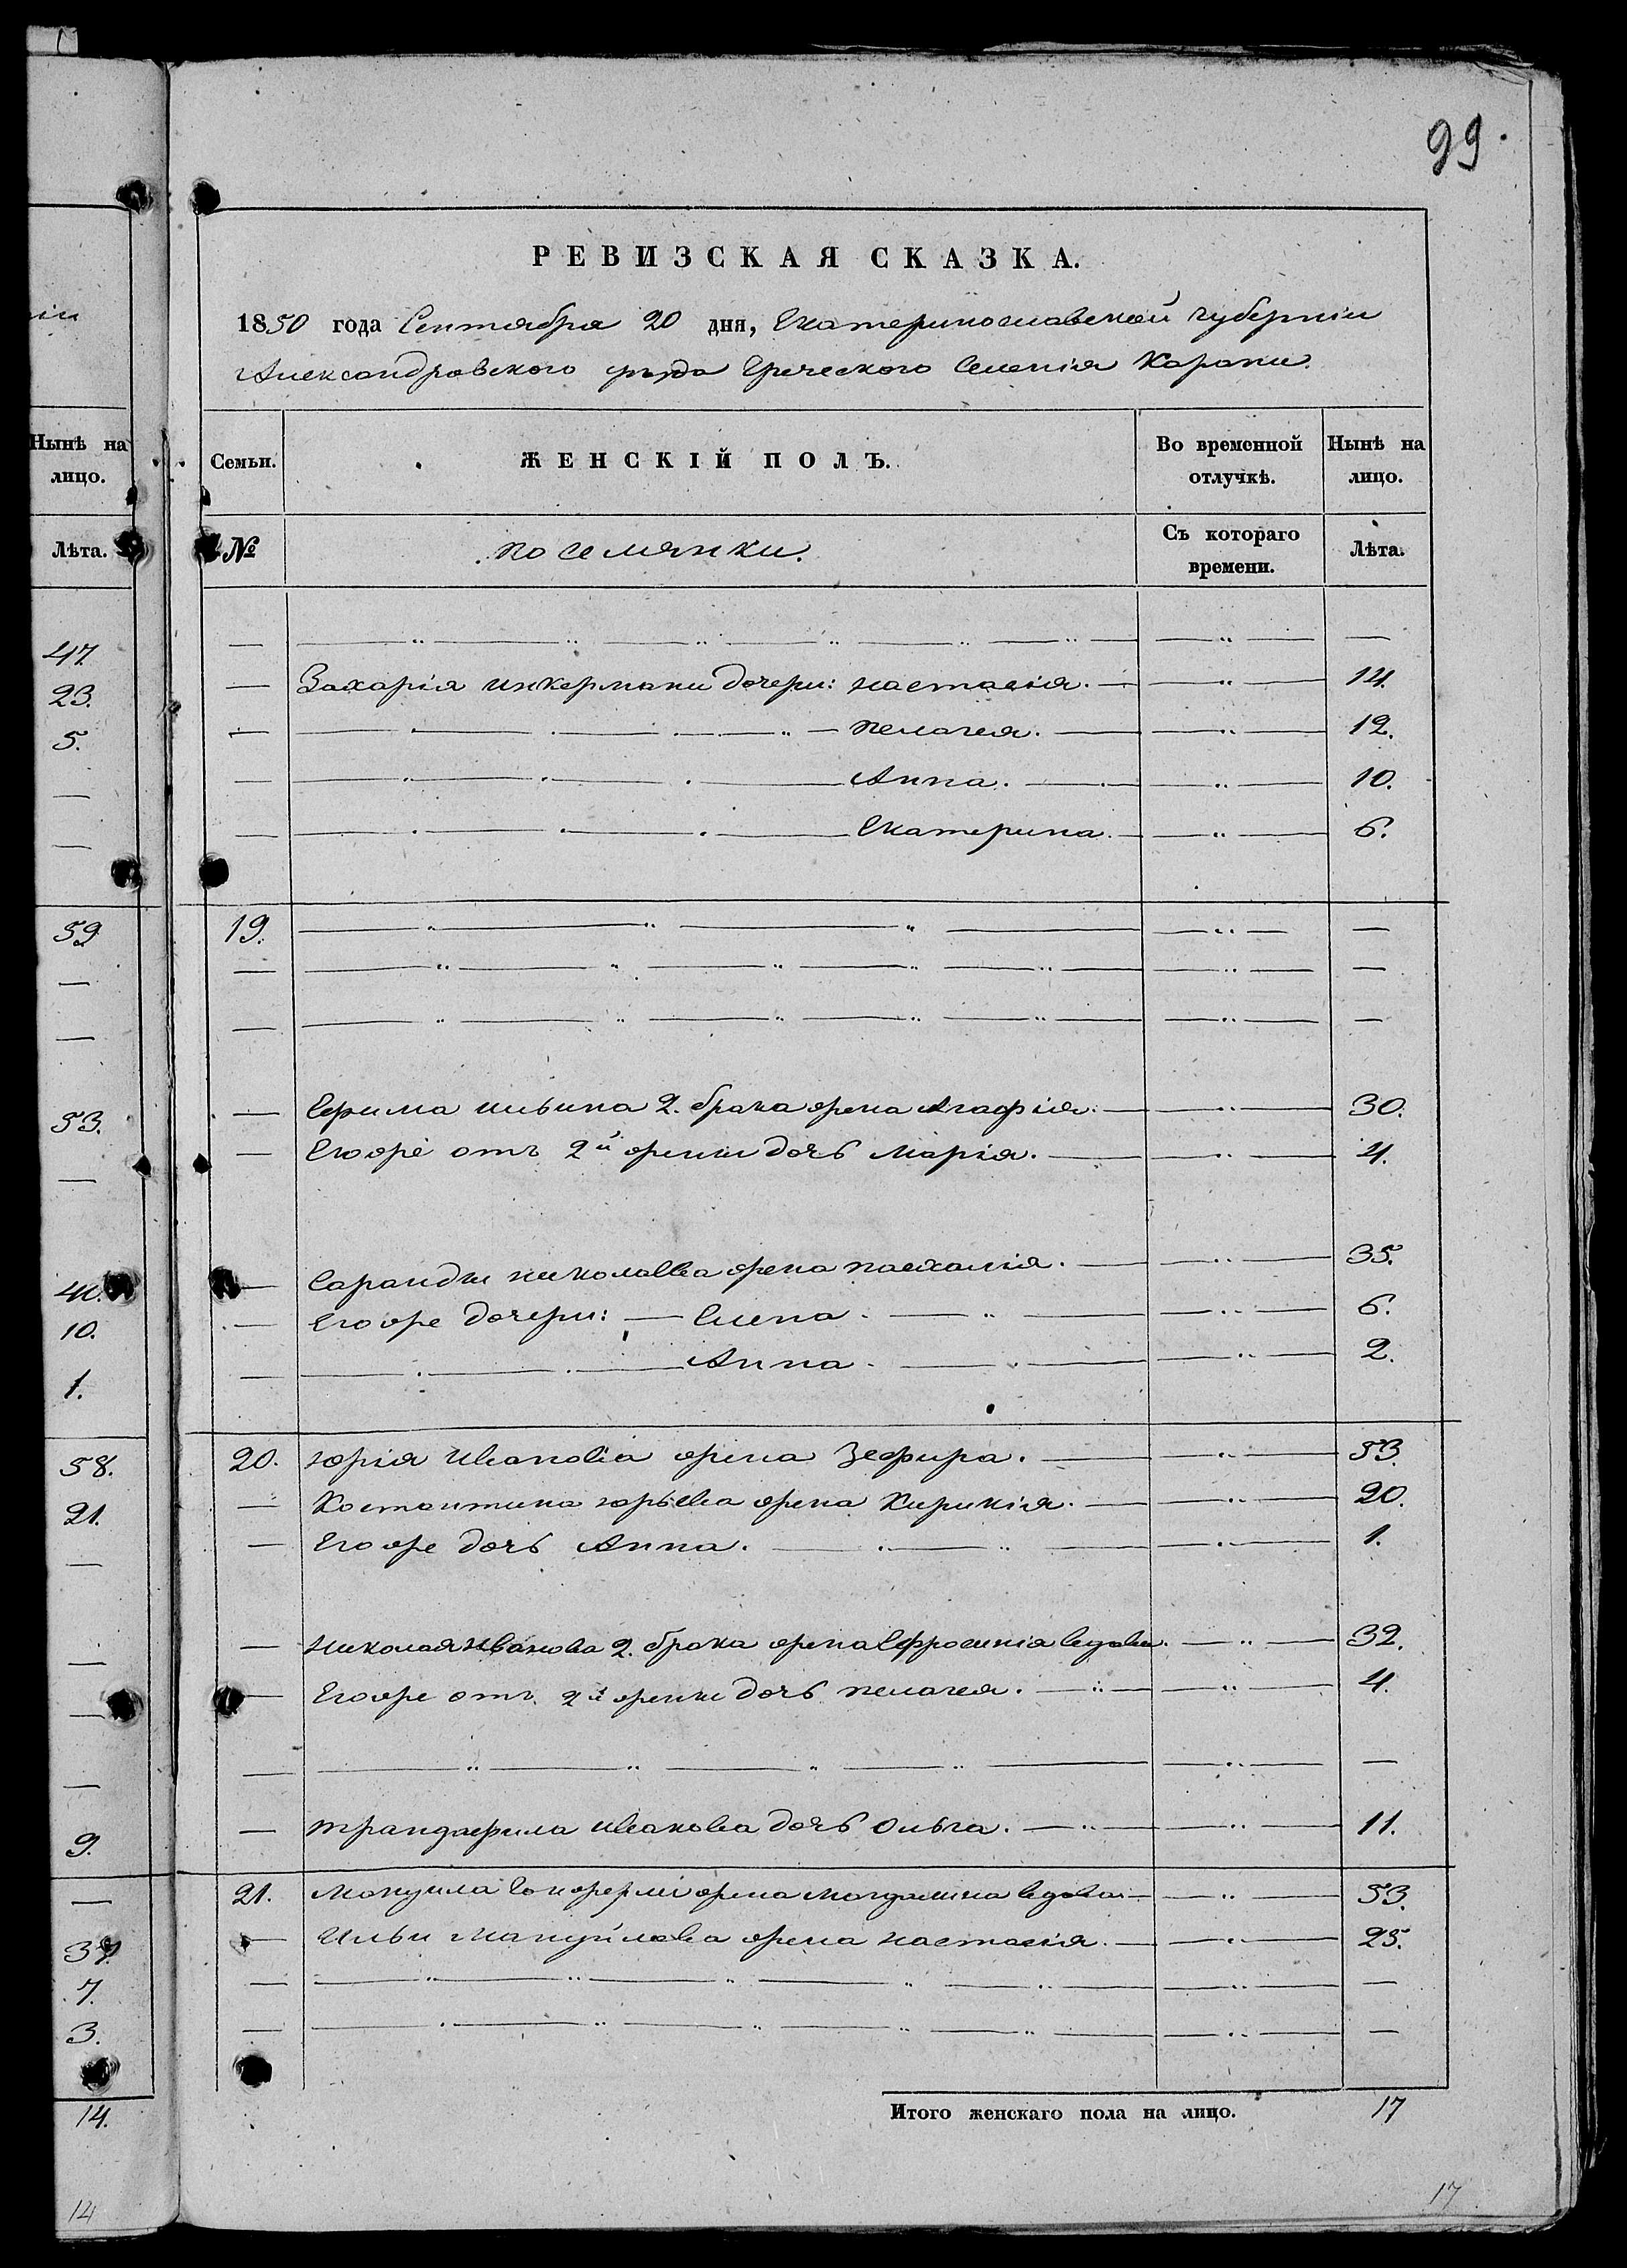 99.
РЕВИЗСКАЯ СКАЗКА.
1850 года Сентября 20 дня, Екатеринославской губерніи
Александровского уѣзда Греческого Селенія Карани.
ніи
Нынѣ на лицо.
Лѣта.
47.
23.
5.
—
—
59
—
—
53.
—
40.
10.
1.
58.
21.
—
—
—
—
9.
—
37.
7.
3.
14.
14
Семьи. ЖЕНСКІЙ ПОЛЪ. Во временной отлучкѣ. Нынѣ на лицо.
№ поселянки. Съ котораго времени. Лѣта.
— Захарія инкермани дочери: настасія. — 14.
— пелагея. — 12.
— Анна. — 10.
— Екатерина. — 6.
19. —
— Ефима ильина 2. брака жена Агафія. — 30.
— Егоже отъ 2й жены дочь Марія. — 4.
— Сарандж николаева жена пасхалія. — 35.
— Егоже дочери: — Елена. — 6.
— Анна. — 2.
20. юрія иванова жена Зефира. — 53.
— Костантина юрьева жена Кирикія. — 20.
— Егоже дочь Анна. — 1.
— николая иванова 2. брака жена Ефросинія вдова. — 32.
— Егоже отъ 2й жены дочь пелагея. — 4.
— трандафила иванова дочь Ольга. — 11.
21. мануила жена вдова — 53.
— Ильи мануйлова жена настасія. — 25.
Итого женскаго пола на лицо. 17
17